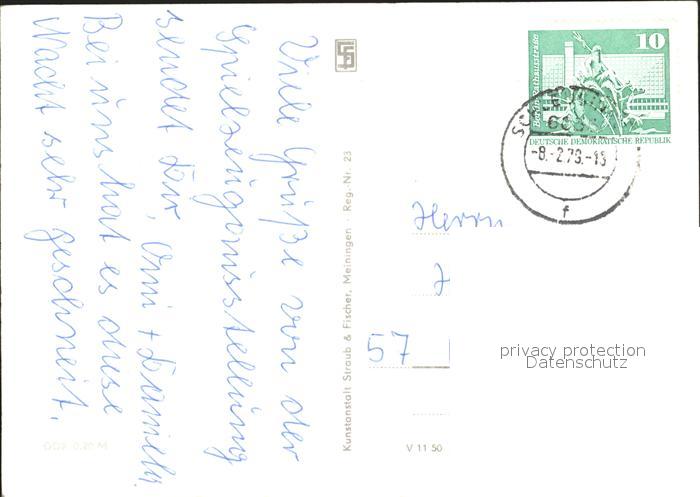 Viele Grüße von der
Spielzeugausstellung
sendet Dir, Omi + Familie.
Bei uns hat es diese
Nacht sehr geschneit.
Kunstanstalt Straub & Fischer, Meiningen · Reg.-Nr. 23
V 11 50
DDR 0,20 M
10
Berlin, Rathausstraße
DEUTSCHE DEMOKRATISCHE REPUBLIK
-8.-2.76.-18
f
Herrn
57
privacy protection
Datenschutz